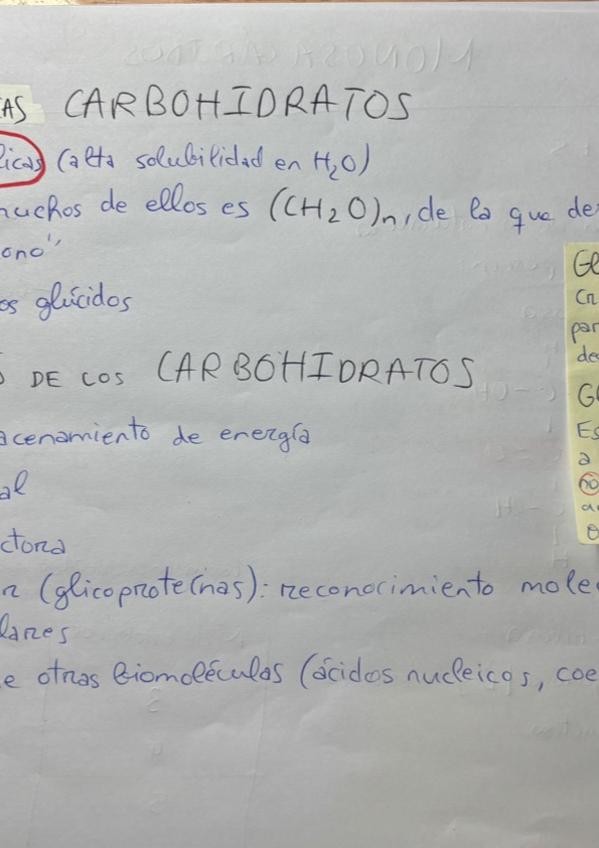 AS CARBOHIDRATOS
licas (alta solubilidad en H₂O)
muchos de ellos es (CH₂O)n, de la que de
ono"
os glúcidos
DE LOS CARBOHIDRATOS
acenamiento de energía
al
ctora
n (glicoproteínas): reconocimiento mole
lares
e otras biomoléculas (ácidos nucleicos, coe
Gl
Cn
par
de
Gl
Es
a
no
a